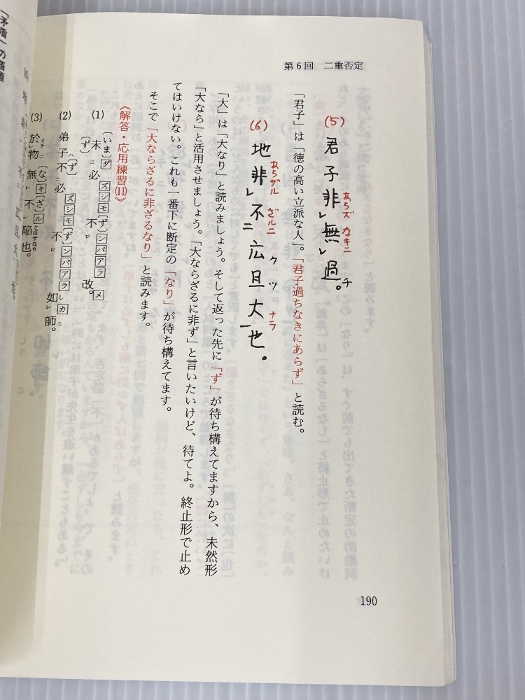 第6回　二重否定
(5) 君子非レ無レ過チ。
あらズ
カキニ
「君子」は「徳の高い立派な人」。「君子過ちなきにあらず」と読む。
(6) 地非レ不二広クツ且大ナラ一也。
あらザル
ざルニ
「大」は「大なり」と読みましょう。そして返った先に「ず」が待ち構えてますから、未然形
「大なら」と活用させましょう。「大ならざるに非ず」と言いたいけど、待てよ。終止形で止め
てはいけない。これも一番下に断定の「なり」が待ち構えてます。
そこで「大ならざるに非ざるなり」と読みます。
《解答・応用練習(11)》
(1) 未二必ズシモ不一ンバアラ改メ
(2) 弟子不必ズシモ不ンバアラ如レカ師。
(3) 於物無不陥也。
190